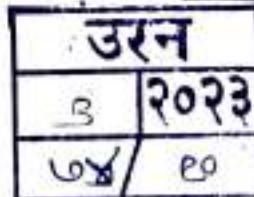 उरन
३ २०२३
७४/ ९०